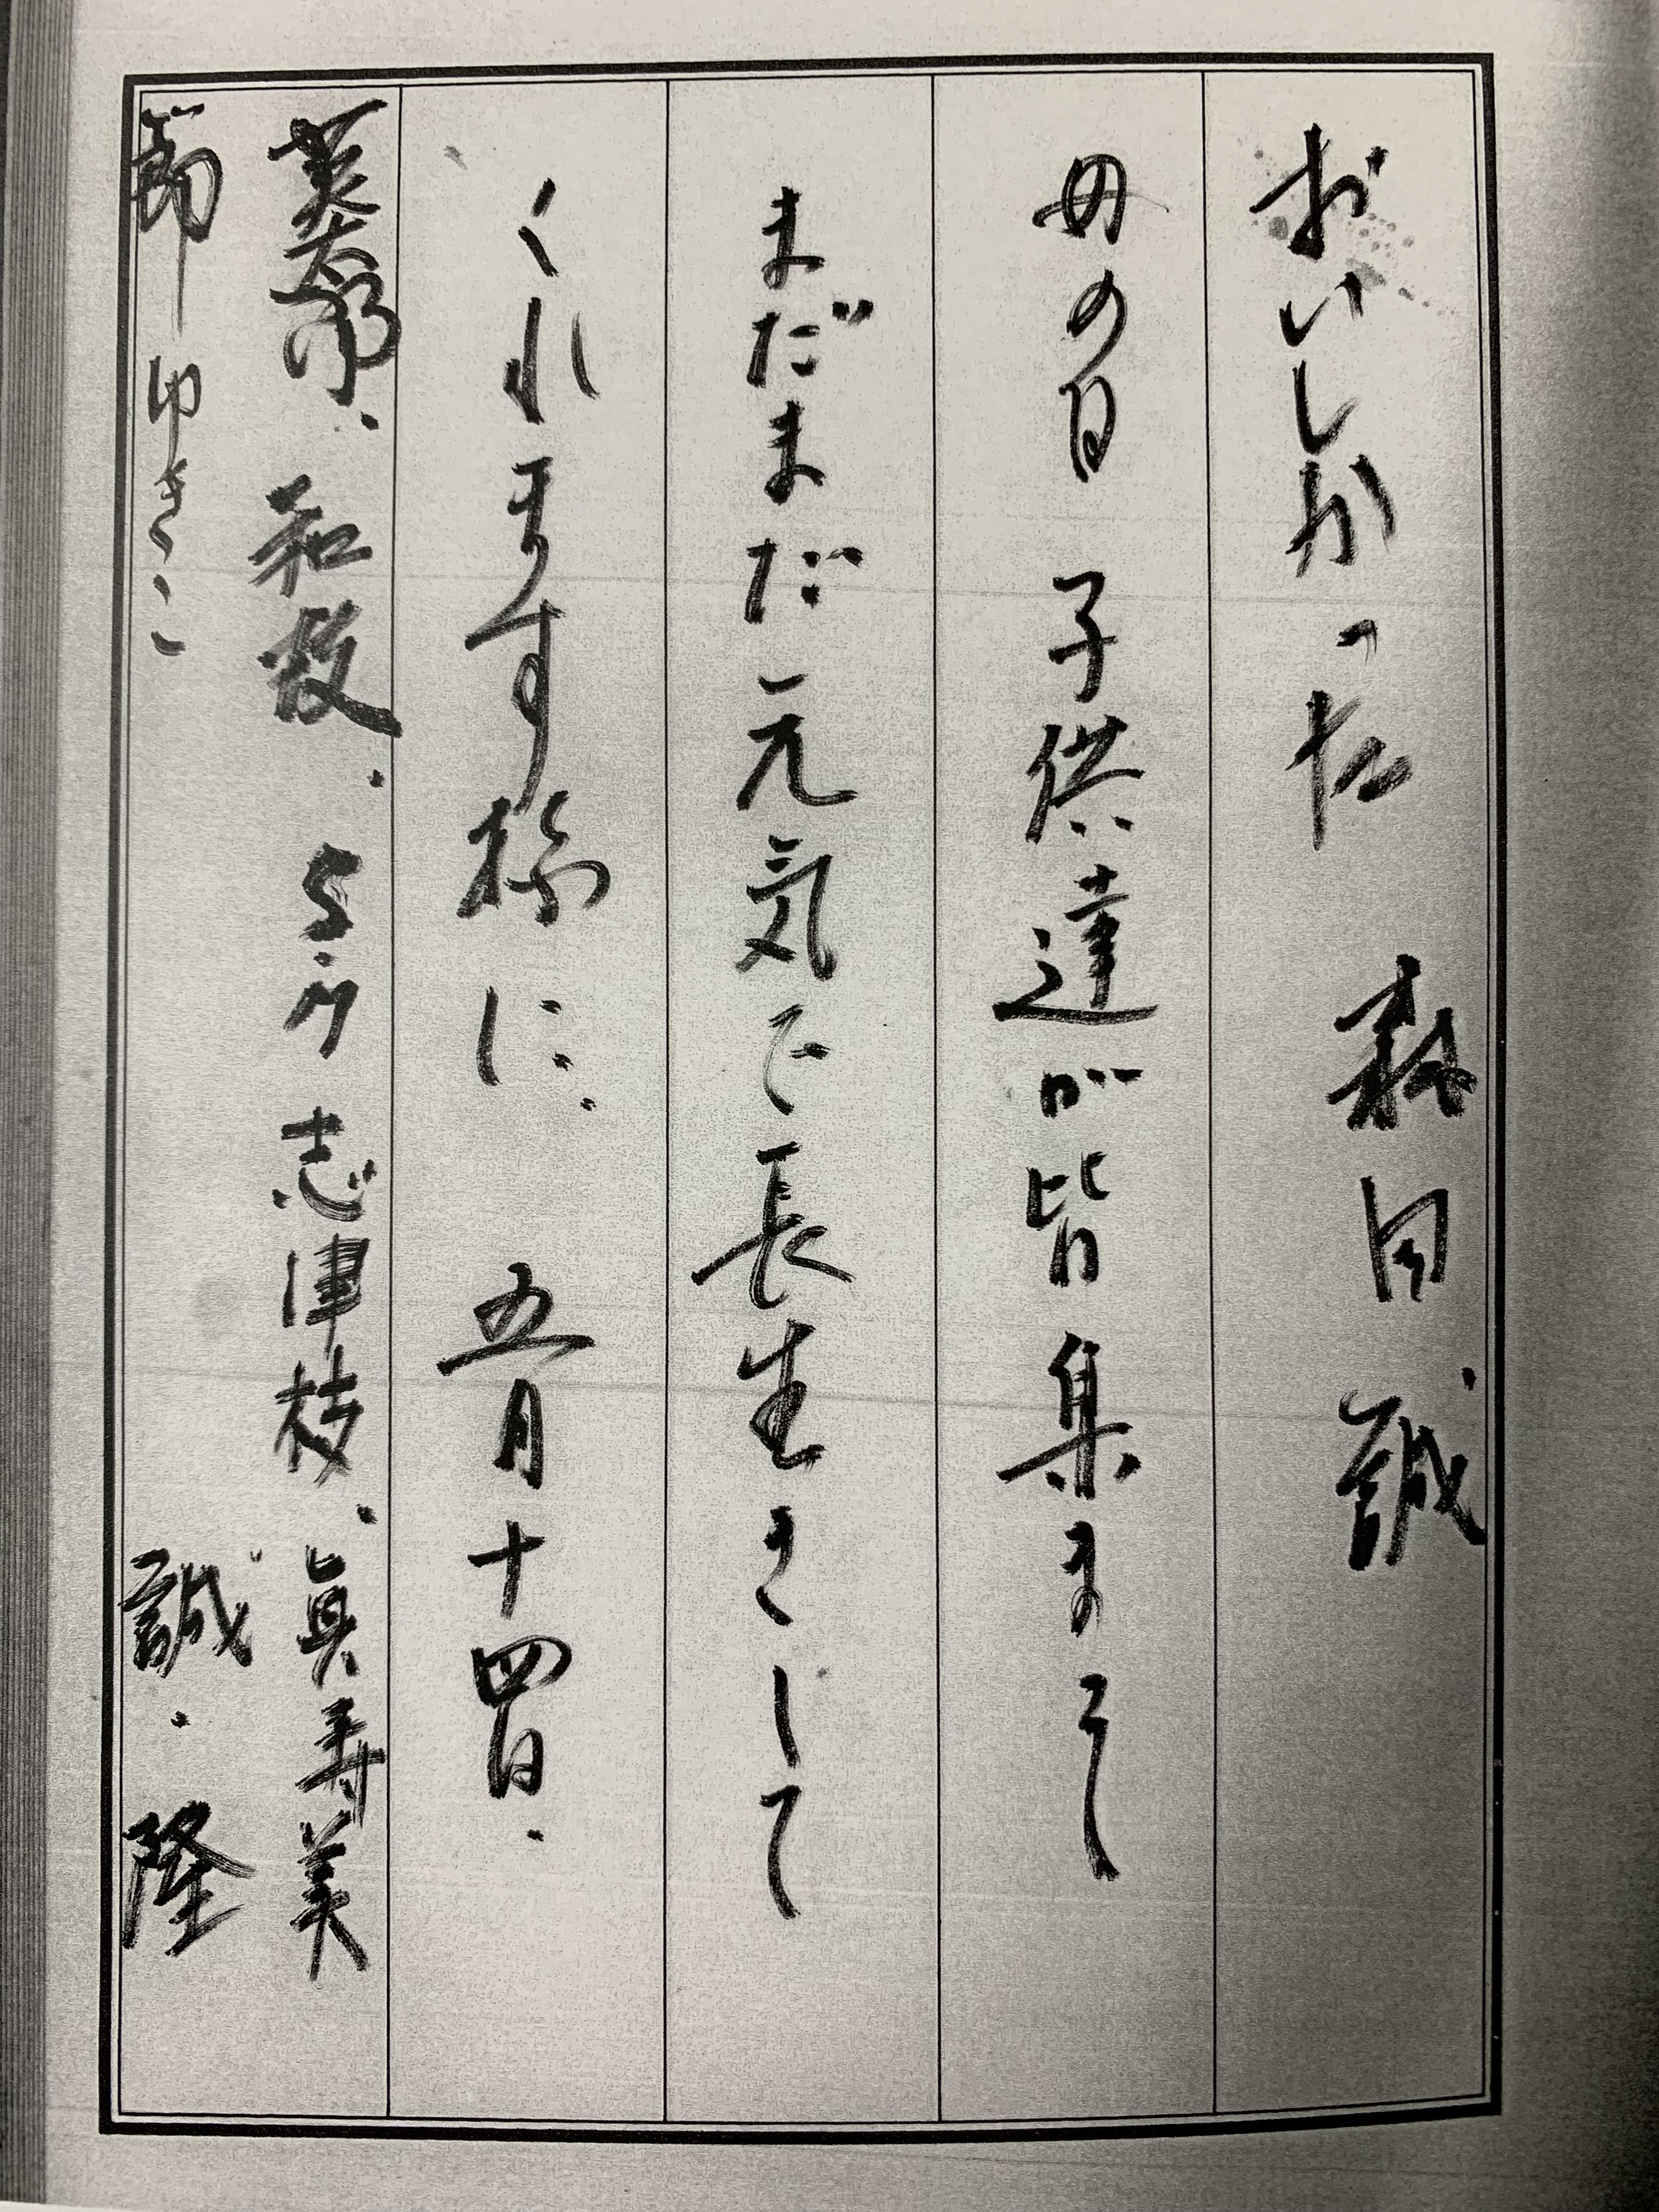 おいしかった 誠
母の日 子供達が皆集まりまして
まだまだ元気で長生きして
くれます様に、 五月十四日.
英太郎、和敏、 志津枝、眞寿美
節 ゆきこ 誠・隆